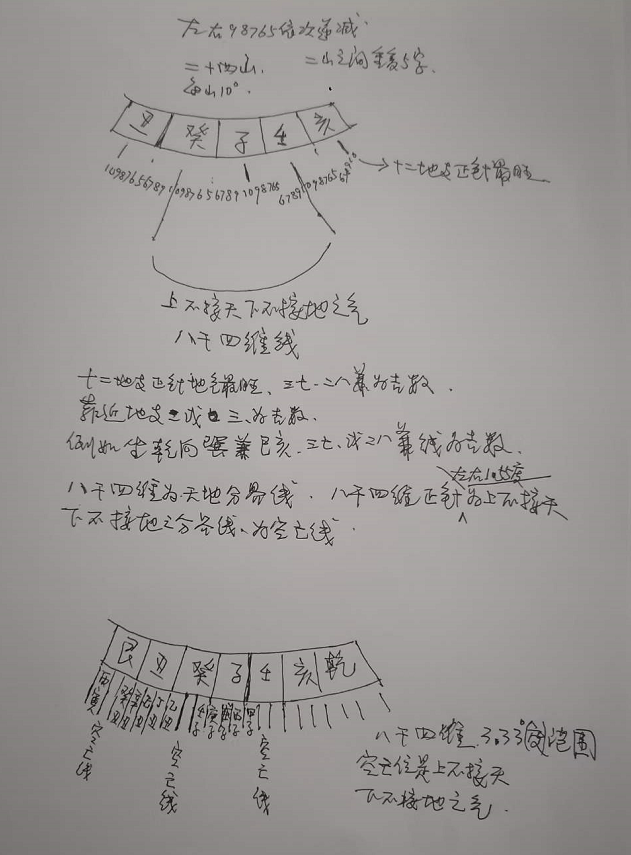 左右98765依次递减
=十四山. =山之间重复5字.
每山10°.
丑 癸 子 壬 亥
109876567891098765678910987656789109876567891
→十二地支正针最旺
上不接天下不接地之气
八干四维线
十二地支正针地气最旺、三七.二八兼为吉数.
靠近地支二或三.为吉数.
例如坐乾向巽兼巳亥.三七.或二八兼线为吉数.
左右1.55度
八干四维为天地分界线. 八干四维正针为上不接天
下不接地之分界线、为空亡线.
艮 丑 癸 子 壬 亥 乾
丙寅 癸丑 辛丑 己丑 丁丑 乙丑 壬子 庚子 戊子 丙子 甲子
空亡线 空亡线 空亡线
八干四维 3.33°的范围
空亡位是上不接天
下不接地之气.